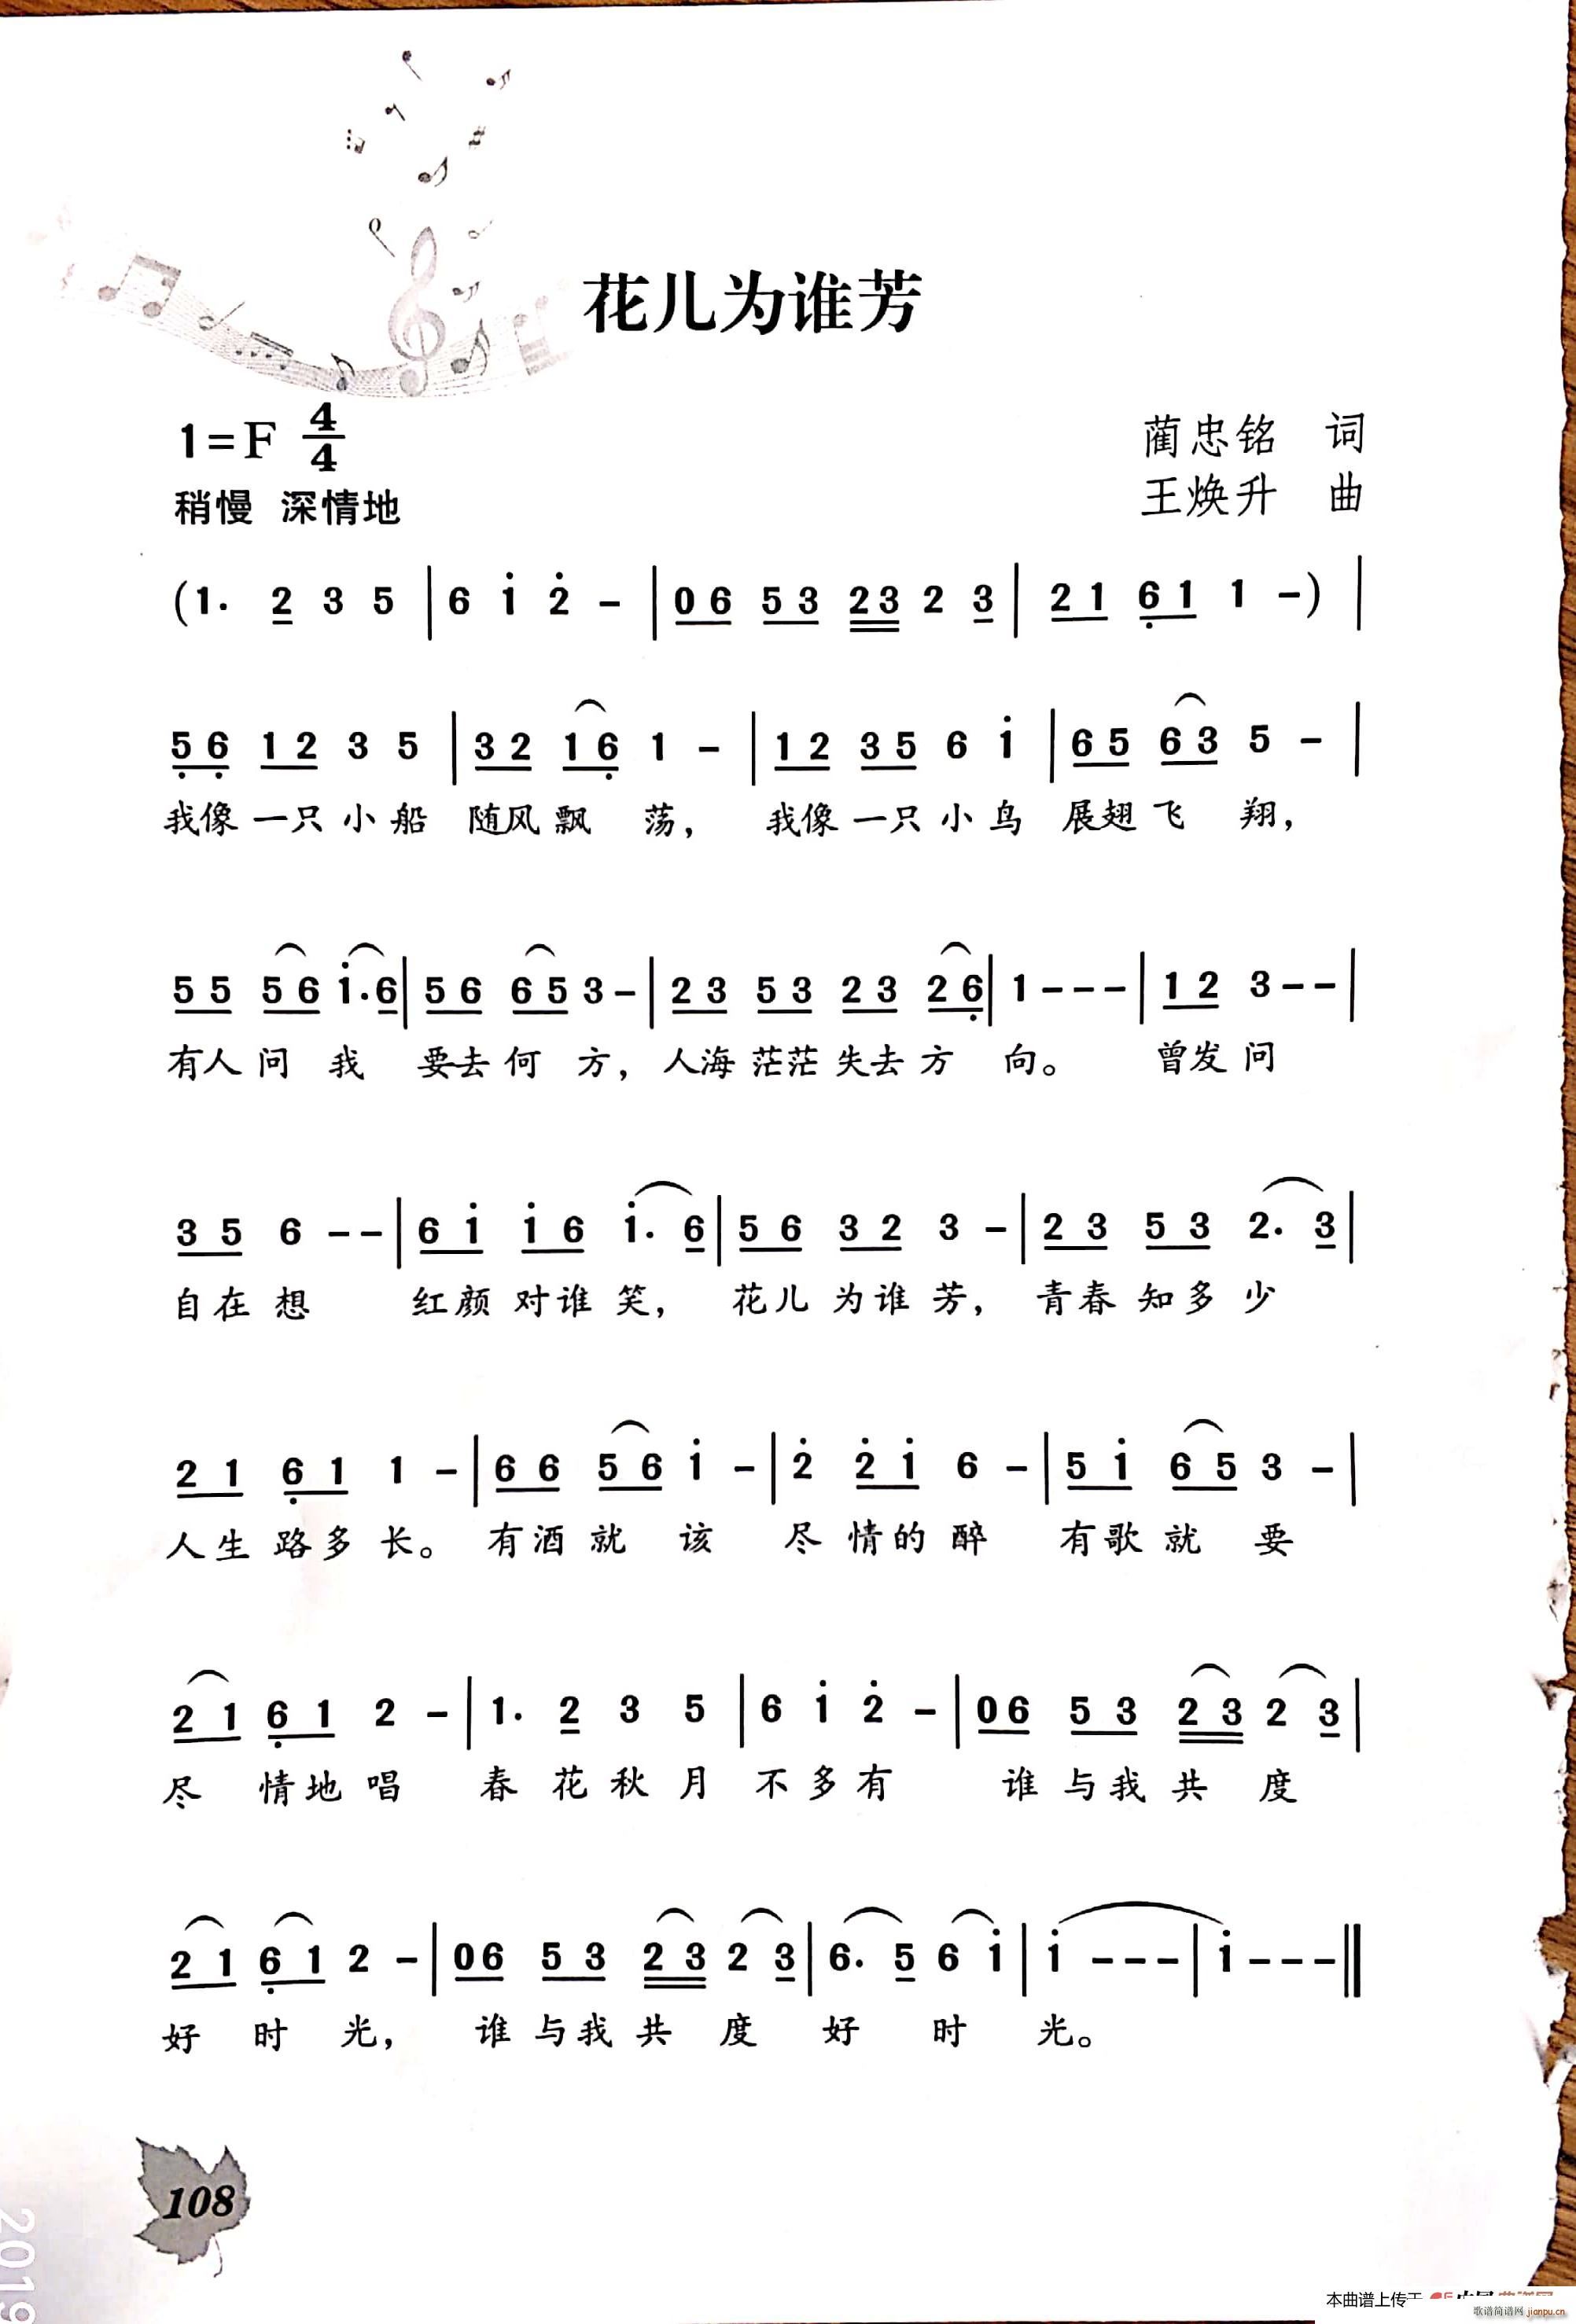 花儿为谁芳
1=F 4/4
蔺忠铭 词
稍慢 深情地
王焕升 曲
(1. 2 3 5 | 6 i̇ 2̇ - | 0 6 5 3 2 3 2 3 | 2 1 6̣ 1 1 -) |
5̣ 6̣ 1 2 3 5 | 3 2 1 6̣ 1 - | 1 2 3 5 6 1̇ | 6 5 6 3 5 - |
我像一只小船 随风飘 荡， 我像一只小鸟 展翅飞 翔，
5 5 5 6 1̇. 6 | 5 6 6 5 3 - | 2 3 5 3 2 3 2 6̣ | 1 - - - | 1 2 3 - - |
有人问 我 要去何 方，人海茫茫失去方 向。 曾发问
3 5 6 - - | 6 1̇ 1̇ 6 1̇. 6 | 5 6 3 2 3 - | 2 3 5 3 2. 3 |
自在想 红颜对谁笑， 花儿为谁芳， 青春知多少
2 1 6̣ 1 1 - | 6 6 5 6 1̇ - | 2̇ 2̇ 1̇ 6 - | 5 1̇ 6 5 3 - |
人生路多长。 有酒就 该 尽情的醉 有歌就 要
2 1 6̣ 1 2 - | 1. 2 3 5 | 6 1̇ 2̇ - | 0 6 5 3 2 3 2 3 |
尽 情地唱 春花秋月 不多有 谁与我共 度
2 1 6̣ 1 2 - | 0 6 5 3 2 3 2 3 | 6. 5 6 1̇ | 1̇ - - - | 1̇ - - - ‖
好 时 光， 谁与我共 度 好 时 光。
108
2019
本曲谱上传于
歌谱简谱网 jianpu.cn